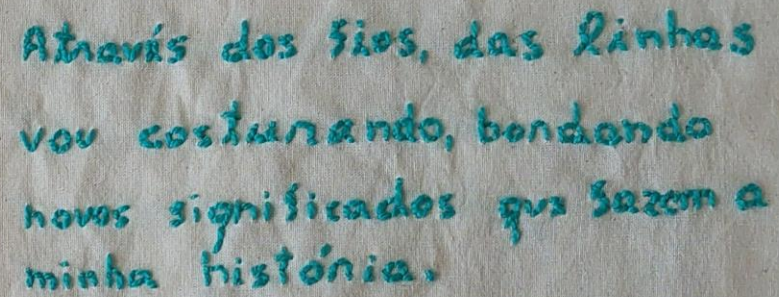 Através dos fios, das linhas
vou costurando, bordando
novos significados que fazem a
minha história.